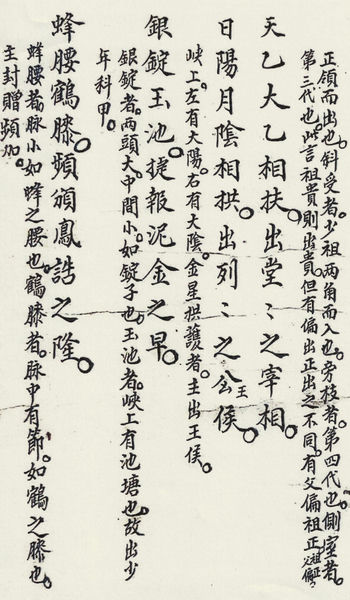 正領而出也。斜受者。少祖兩角而入也。旁枝者。第四代也。側室者。
第三代也。此言祖貴則出貴。但有偏出正出之不同。有父偏祖正
天乙大乙相扶。出堂〻之宰相。
日陽月陰相拱。出列〻之公侯。
王
峽上。左有大陽。右有大陰。金星拱護者。主出王侯。
銀錠玉池。捷報泥金之早。
銀錠者。兩頭大。中間小。如錠子也。玉池者。峽上有池塘也。故出少
年科甲。
蜂腰鶴膝。頻頒鳳誥之隆。
蜂腰者。脉小如蜂之腰也。鶴膝者。脉中有節。如鶴之膝也。
主封贈頻加。